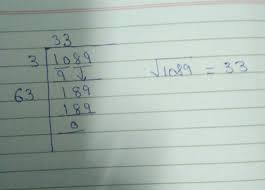 33
3 1089
9 ↓
63 189
189
0
√1089 = 33